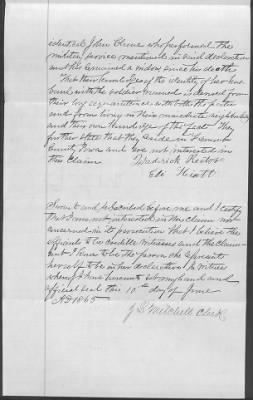 identical John Cline who performed the
military service mentioned in said declaration
and has remained a widow since his death
that their knowledge of the identity of her hus
band with the soldier named is derived from
their long acquaintance with both the parties
and from living in their immediate neighborhood
and their own knowledge of the facts They
further state that they reside in
County Iowa and are not interested in
this claim Fredrick
Ed Hiatt
Sworn to and subscribed before me and I certify
that I am not interested in this claim nor
concerned in its prosecution that I believe the
affiants to be credible witnesses and the claim
ant I know to be the person she represents
herself to be in her declaration In witness
whereof I have hereunto set my hand and
official seal this 10th day of June
AD 1865
J D Mitchell Clerk